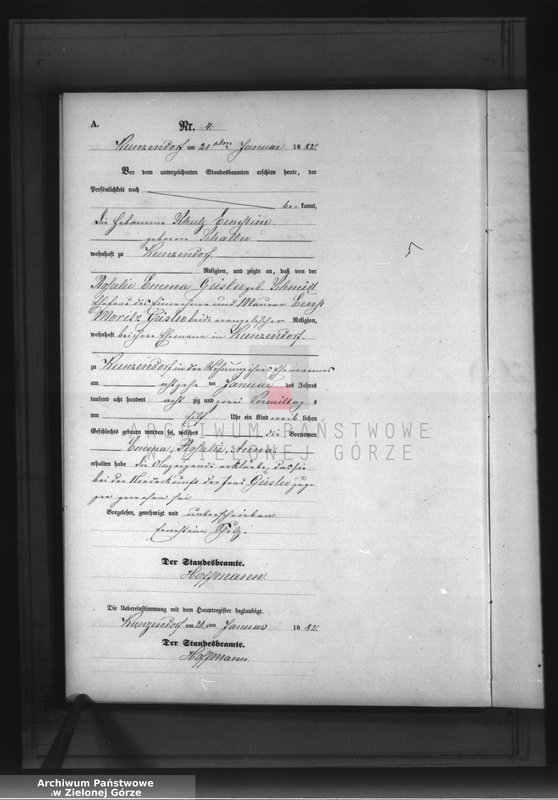 A.
Nr. 4.
Kunzendorf am 21 ten Januar 1882.
Vor dem unterzeichneten Standesbeamten erschien heute, der
Persönlichkeit nach
be-kannt,
die Hebamme Schulz Ernestine
geborne
wohnhaft zu Kunzendorf
Religion, und zeigte an, daß von der
Rosalie Emma Geisler geb. Schmidt
Ehefrau des Einwohner und Maurer Ernst
Moritz Geisler beide evangelischer Religion,
wohnhaft bei ihrem Ehemann in Kunzendorf
zu Kunzendorf in der Wohnung ihres Ehemannes
am ten Januar des Jahrs
tausend acht hundert acht zig und zwei Vormittag s
um Uhr ein Kind weib lichen
Geschlechts geboren worden sei, welches die Vornamen
Emma, Rosalie, Anna
erhalten habe die Anzeigende erklärte, das sie
bei der Niederkunft der Frau Geisler zuge
gen gewesen sei
Vorgelesen, genehmigt und unterschrieben
Ernestine Schulz.
Der Standesbeamte.
Hoffmann
Die Uebereinstimmung mit dem Hauptregister beglaubigt.
Kunzendorf am 21. ten Januar 1882.
Der Standesbeamte.
Hoffmann
ARCHIWUM PAŃSTWOWE
W ZIELONEJ GÓRZE
Archiwum Państwowe
w Zielonej Górze